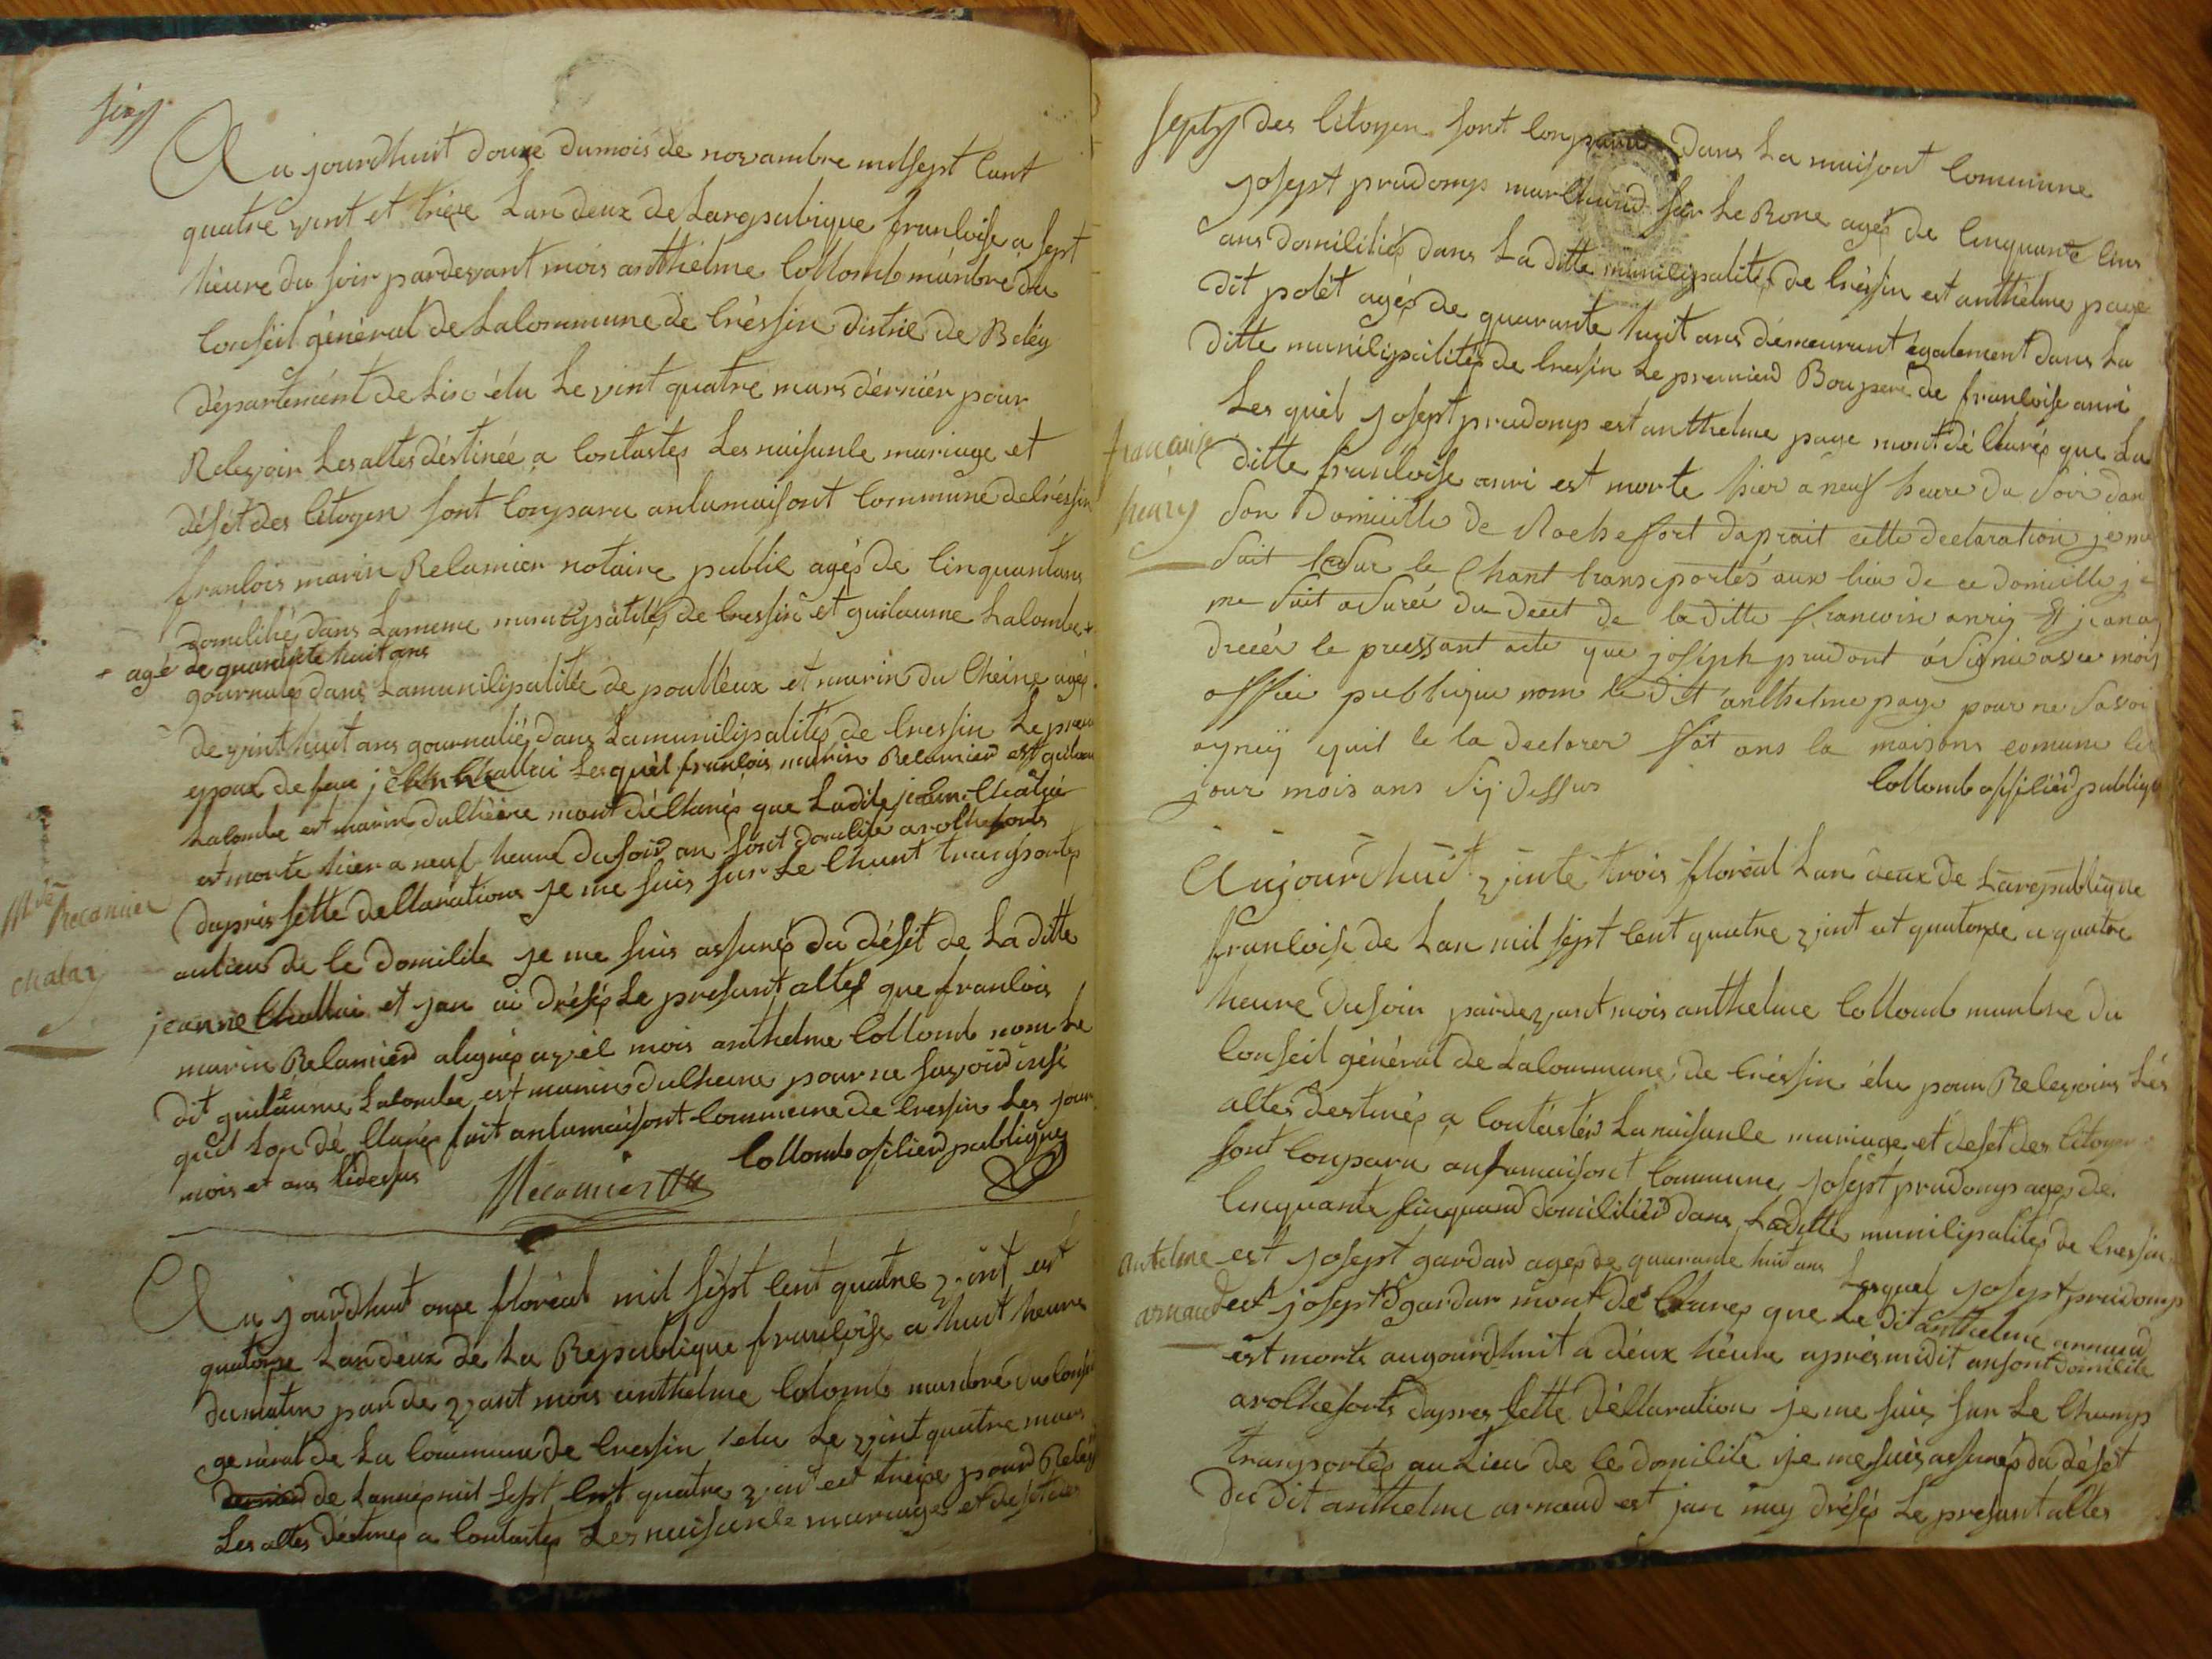 Au jourdhuit douze du mois de novambre mil sept cant
quatre vint et treze Lan deux de La republique francoise a sept
hieure du soir pardevant mois anthelme Collomb manbre du
Conseil général de La Commune de Cressin distric de Beley
département de Lin élu Le vint quatre mars dérniér pour
Recevoir Les actes déstinée a Contastés Les naisance mariage et
dését des Citoyen sont Conparu an La maisont Commune de Cressin
francois marin Recamier notaire public agés de Cinquant ans
domicilié dans La meme municipalités de Cressin et guilaume Lacombe +
+ agé de quarante huit ans
gournaliés dans La municipalitée de poullieux et marin du Cheine agés
de vint huit ans gournaliés dans La municipalités de Cressin Le premier
epoux de feue jeanne Challai Lesquél francois marin Recamier est guilaume
Lacombe est marin duchéne mont déClarés que Ladite jeanne Challai
est morte hier a neuf heure du soir an sont domicile a rochefort
dapris sette declarations je me suis sur Le Chant transportés
au lieu de Ce domicile je me suis assurés du dését de La ditte
jeanne Challai et jan ai drésés Le presant actes que francois
marin Recamier a signés avéc mois anthelme Collomb nom Le
dit guilaume Lacombe est marin duchene pour ne savoir insi
quil Lon déClarés fait an La maisont Commune de Cressin Les jour
mois et ans Cidesus
Recamier
Collomb oficiér publique
Mie Recamier
chalay
Au jourdhuit onze floréal mil sépt cent quatre vint est
quatorze Lan déux de La Republique francoise a huit heure
du matin par devant mois anthelme Colomb manbre du Conseil
général de La Commune de Cressin élu Le vint quatre mars
dernier de Lannés mil sept cent quatre vint est treize pour Recevoir
Les actes déstinés a Contastés Les naisance mariage et deset des
septs des Citoyen sont Conparu dans La maisont Commune
josept prudomp marchand sur Le Rone agés de Cinquante Cinq
ans domiciliés dans La ditte municipalités de Cressin est anthélme page
dit polét agés de quarante huit ans démeurant également dans La
ditte municipalités de Cressin Le premier Boupere de francoise anri
Les quél josept prudomp est anthelme page mont déClarés que La
ditte francoise anri est morte hier a neuf heure du soir dan
son domicille de Rochefort daprait cette declaration je me
suit sur le Chant transeportés aux lieu de ce domicille je
me suit asurée du decet de la ditte francoise anriy et jan ay
dreeér le pressant acte que joséph prudont a signie avec moiy
offiei publique nom le dit anthelme page pour ne savoir
signiy quil le la declarer fait ans la maisons comune les
jour mois ans sij dessus
Collomb oficiér publique
francaise
henry
Aujourdhuit vinte trois floréal Lan deux de La republique
francoise de Lan mil sept cent quatre vint et quatorze a quatre
heure du soir pardevant mois anthelme Collomb manbre du
Conseil général de La Commune de Créssin élu pour Recevoir Lés
actes destinés a Contéstés La naisance mariage et deset des Citoyen
sont Conparu an La maisont Commune josept prudomp agés de
Cinquante sinquand domiciliér dans La ditte municipalités de Cressin
est josept gardar agés de quarante huit ans Lesquel josept prudomp
est josept gardar mont déClarés que Le dit anthelme arnaud
est morts augourdhuit a déux héure aprés midit an sont domicile
a rochefort dapres sette déClaration je me suis sur Le Champ
transportés au Lieu de Ce domicile je me suis assurés du dését
du dit anthelme arnaud est jan nay drésés Le presant actes
antelme
arnaud